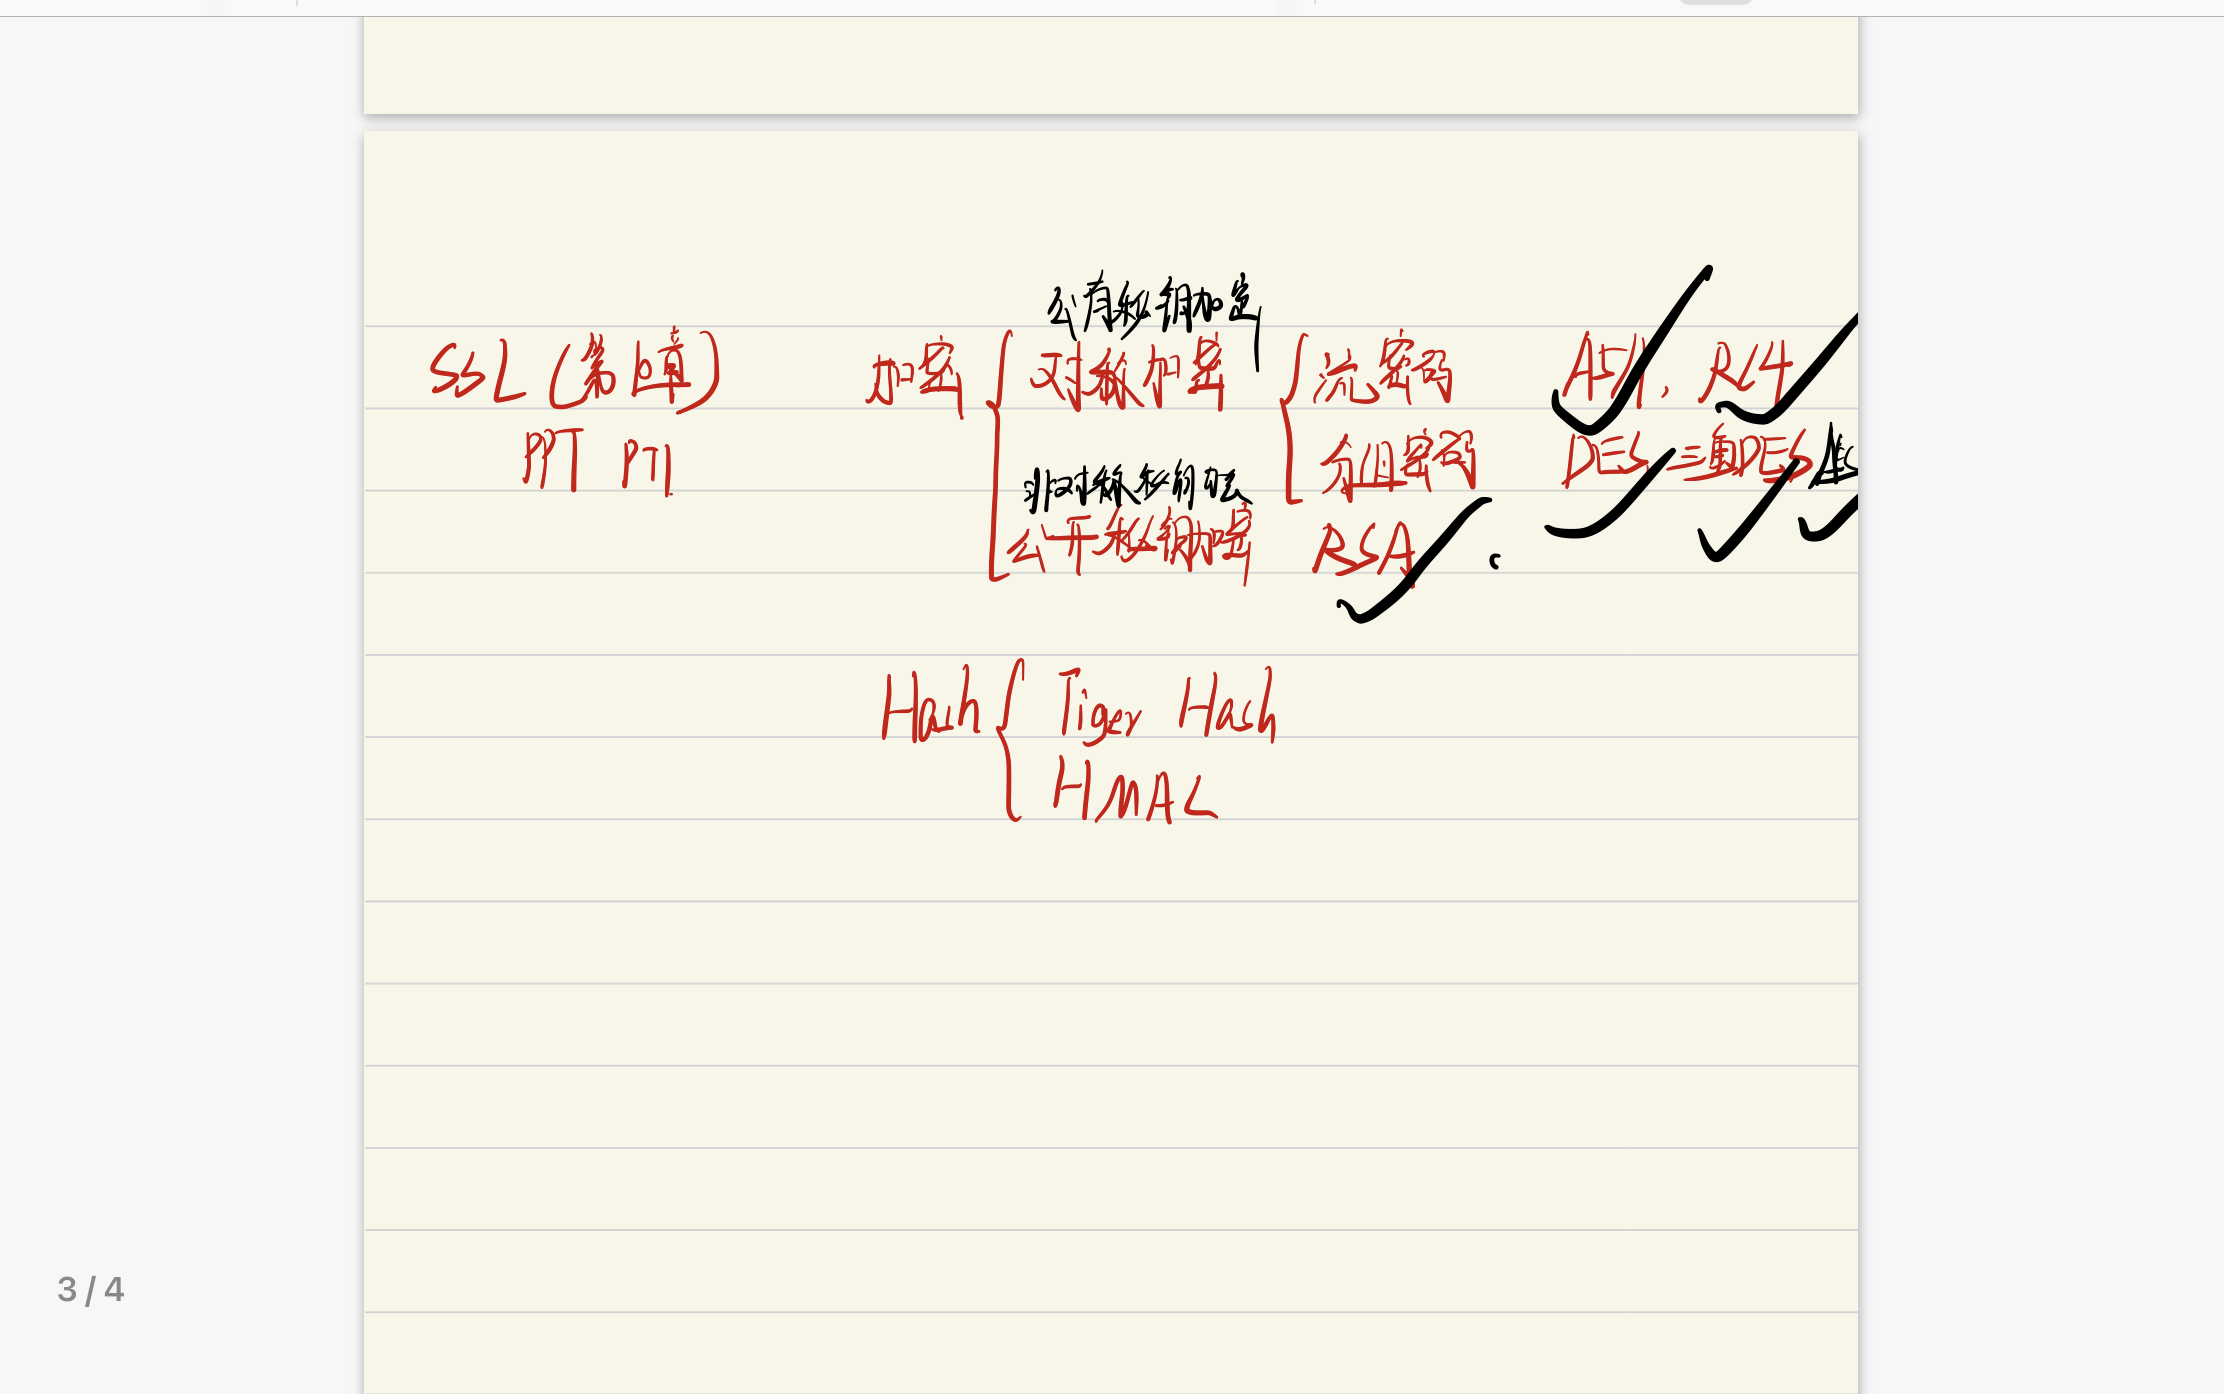 公有私钥加密
SSL (第6章) 加密 对称加密 流密码 A5/1, RC4
PPT P71 分组密码 DES 三重DES AES
非对称私钥
公开私钥加密 RSA
Hash Tiger Hash
HMAC
3 / 4